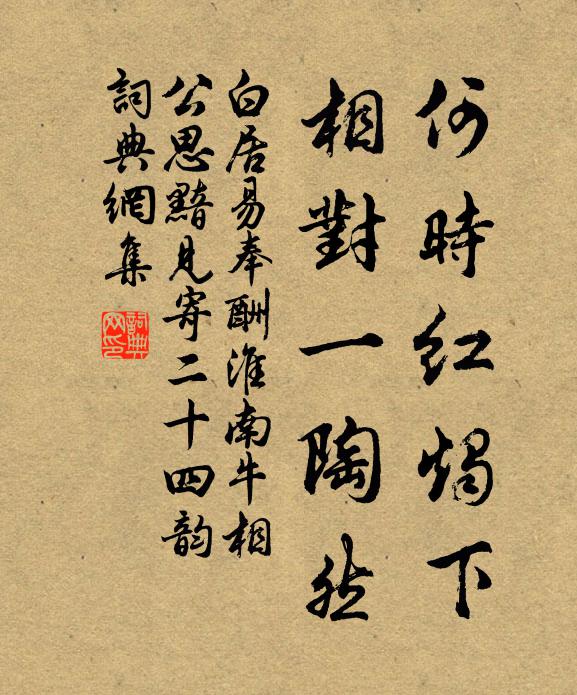 何時紅燭下
相對一陶然
白居易奉酬淮南牛相
公思黯見寄二十四韵
詞典網集
詞典
网印